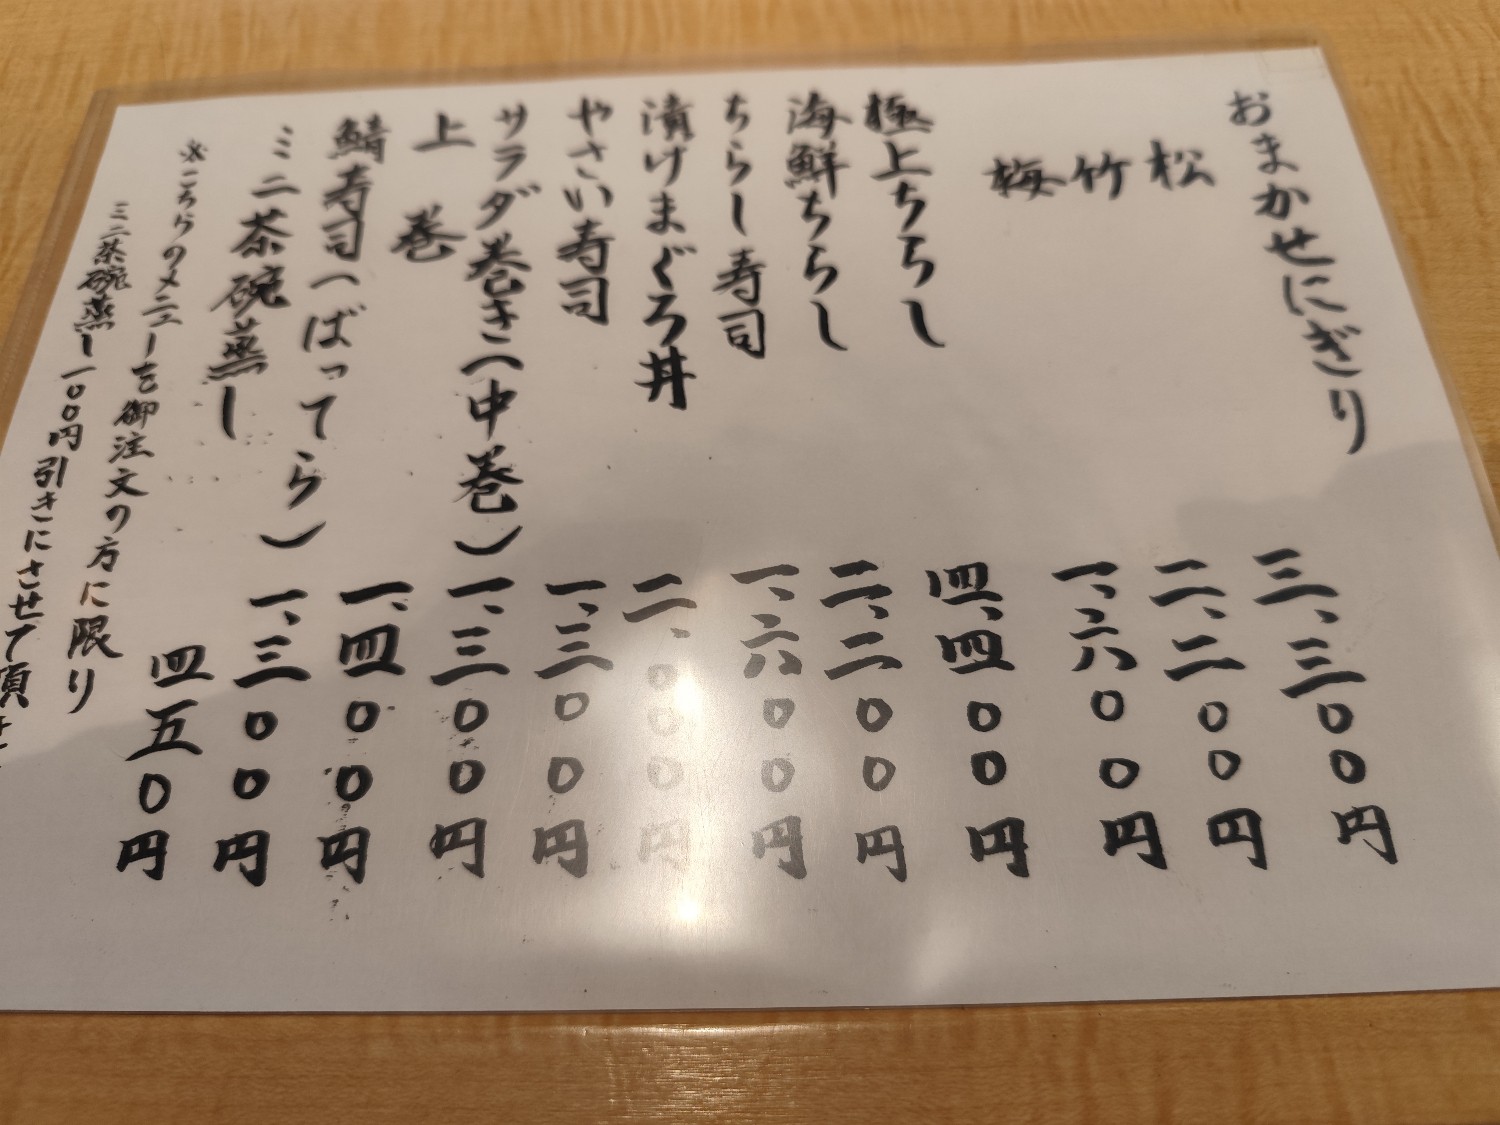 おまかせにぎり
松 三、三〇〇円
竹 二、二〇〇円
梅 一、六〇〇円
極上ちらし 四、四〇〇円
海鮮ちらし 二、二〇〇円
ちらし寿司 一、六〇〇円
漬けまぐろ丼 二、〇〇〇円
やさい寿司 一、三〇〇円
サラダ巻き(中巻) 一、三〇〇円
上巻 一、四〇〇円
鯖寿司(ばってら) 一、三〇〇円
ミニ茶碗蒸し 四五〇円
※こちらのメニューを御注文の方に限り
ミニ茶碗蒸し一〇〇円引きにさせて頂